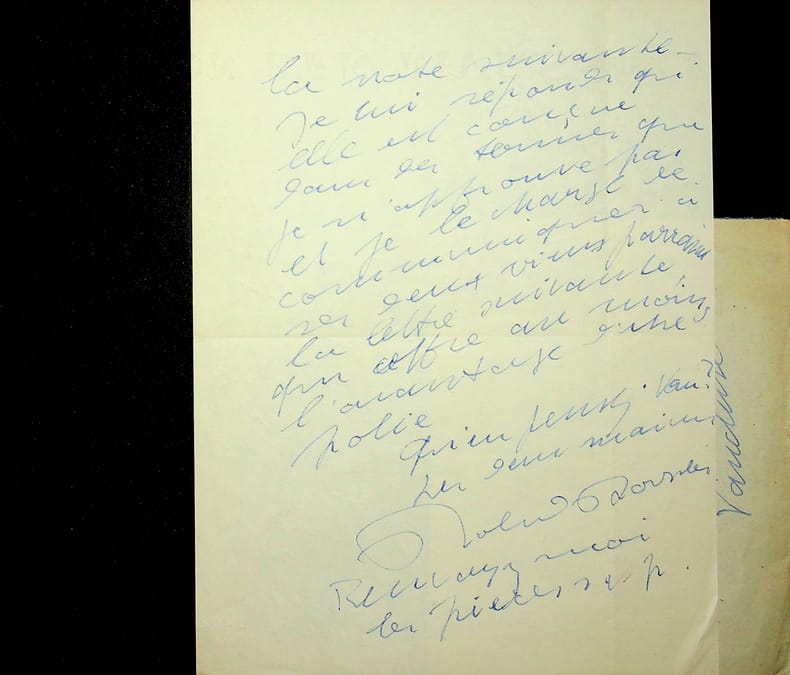 la note suivante –
Je lui réponds qu'
elle est conçue
dans des termes que
je n'approuve pas
et je le charge de
communiquer à
ses deux vieux parrains
la lettre suivante,
qui offre au moins
l'avantage d'être
polie
Qu'en pensez vous?
Les deux mains
Roland
Renvoyez moi
les pièces s v p.